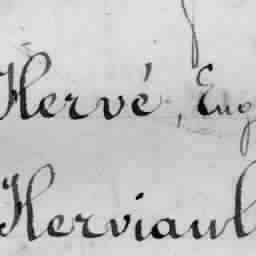 Hervé, Eug
Herviaul